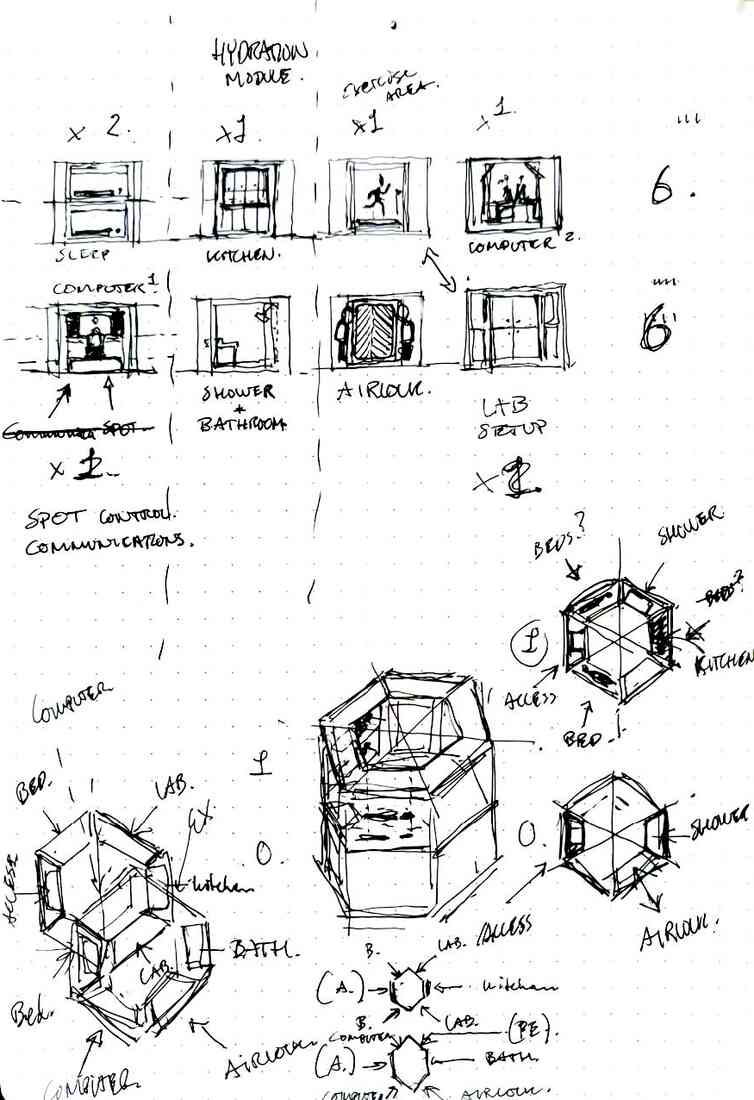 HYDRATION
MODULE.
EXERCISE
AREA.
x 2.
x1
x1
x1
6.
SLEEP
KITCHEN.
COMPUTER 2.
COMPUTER 1
6
SHOWER
+
BATHROOM
AIRLOCK.
LAB
SETUP
SPOT CONTROL
COMMUNICATIONS.
BEDS?
SHOWER
BED?
KITCHEN
1
ACCESS
BED
COMPUTER
1
BED.
LAB.
EX
O.
O.
SHOWER
ACCESS
kitchen
ACCESS
AIRLOCK.
BATH.
LAB
Bed.
AIRLOCK
COMPUTER
B.
LAB.
(A.)
kitchen
B.
LAB.
COMPUTER
(A)
BATH.
AIRLOCK.